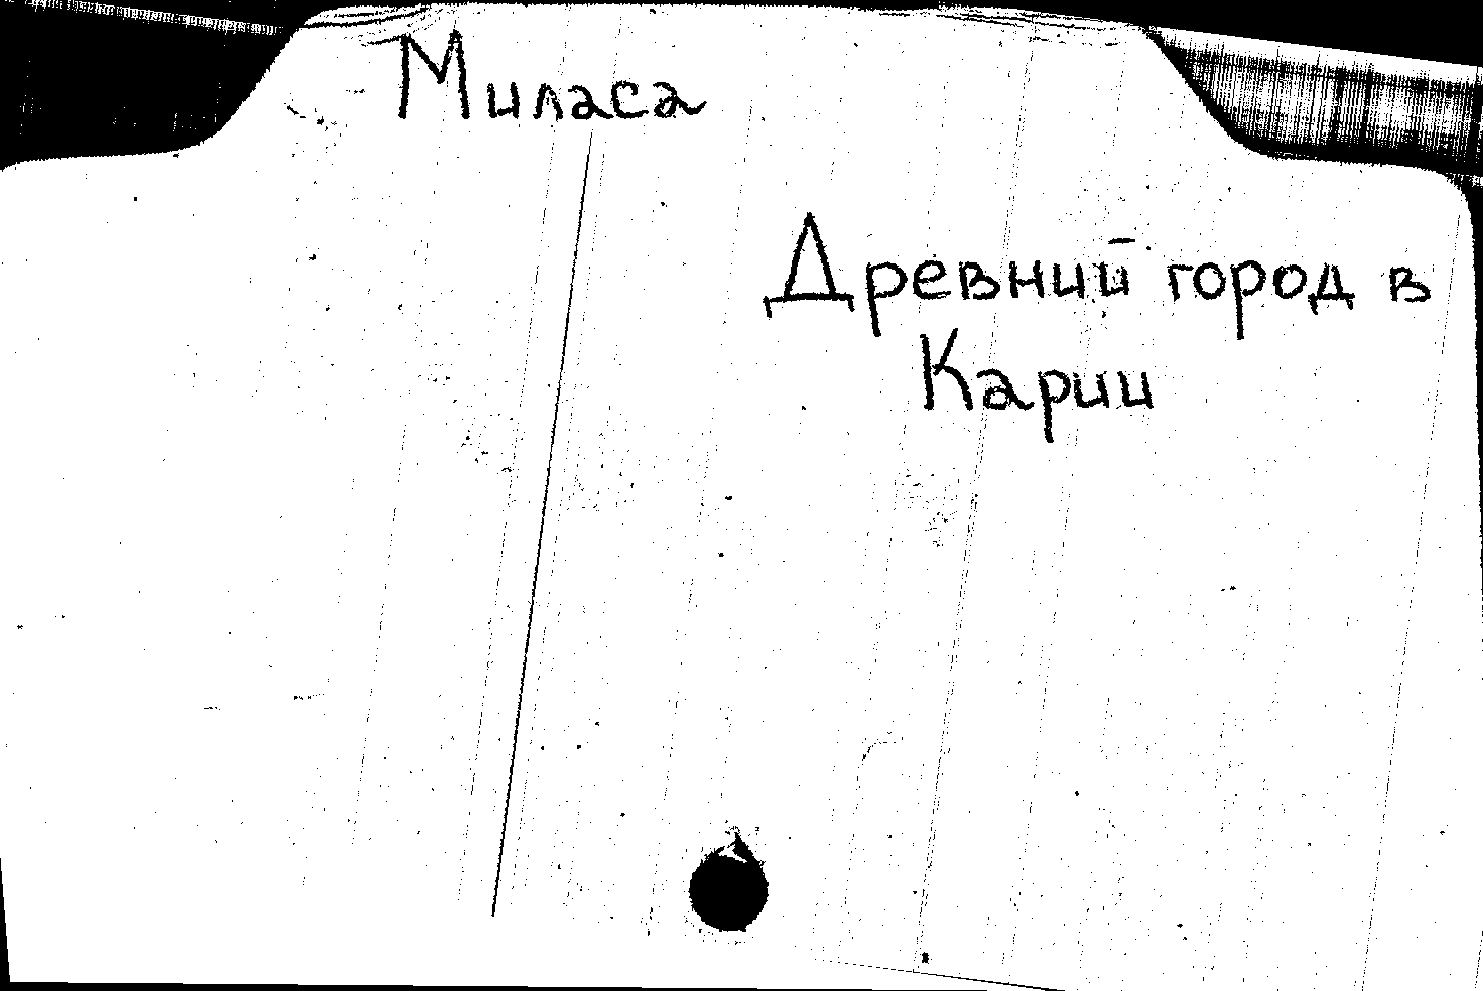 Миласа
Древний город в
Карии